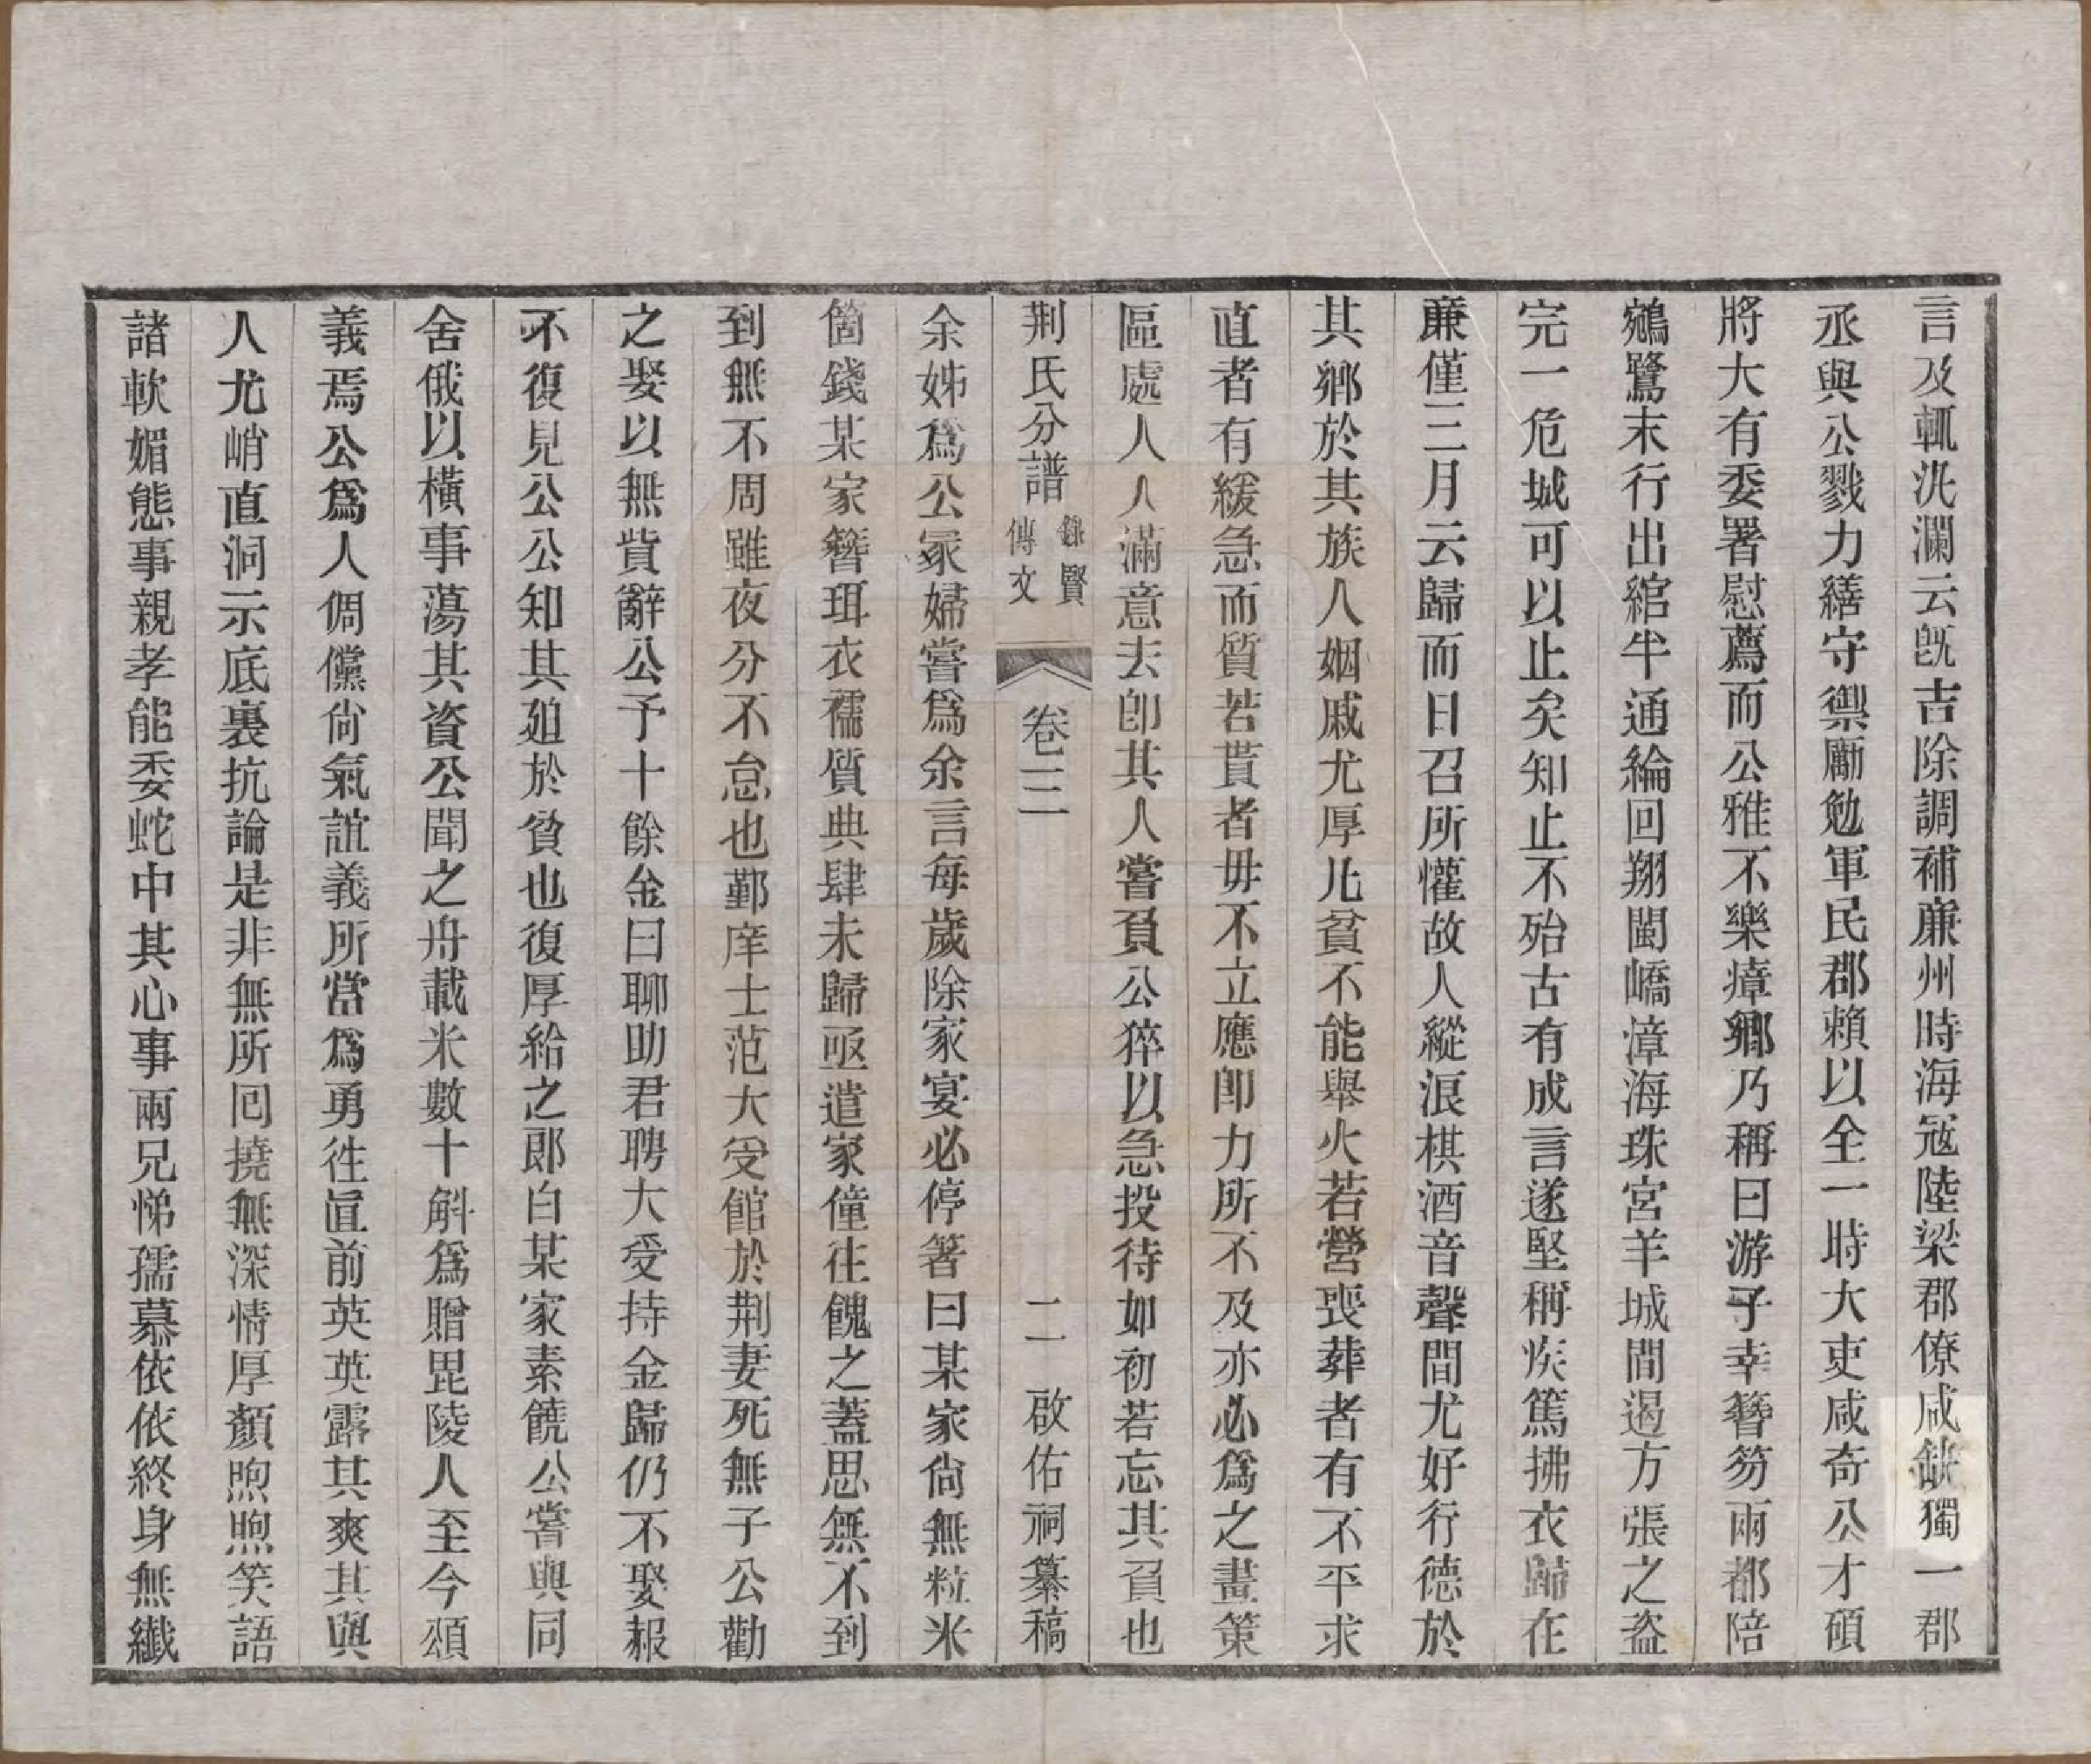 言及輒汍瀾云旣吉除調補廉州時海冦陸梁郡僚咸缺獨一郡
丞與公戮力繕守禦勵勉軍民郡賴以全一時大吏咸奇公才碩
將大有委署慰薦而公雅不樂瘴鄉乃稱曰游子幸簪笏兩都陪
鵷鷺末行出綰半通綸回翔閩嶠漳海珠宮羊城間遏方張之盜
完一危城可以止矣知止不殆古有成言遂堅稱疾篤拂衣歸在
廉僅三月云歸而日召所懽故人縱浪棋酒音聲間尤好行德於
其鄉於其族人姻戚尤厚凡貧不能舉火若營喪葬者有不平求
直者有緩急而質若貰者毋不立應即力所不及亦必爲之畫策
區處人人滿意去卽其人嘗負公猝以急投待如初若忘其負也
荆氏分譜 錄賢傳文 卷三 二 啟佑祠纂稿
余姊爲公冢婦嘗爲余言每歲除家宴必停箸曰某家尙無粒米
箇錢某家簪珥衣襦質典肆未歸亟遣家僮往餽之蓋思無不到
到無不周雖夜分不怠也鄞庠士范大受館於荆妻死無子公勸
之娶以無貲辭公予十餘金曰聊助君聘大受持金歸仍不娶報
不復見公公知其廹於貧也復厚給之郎白某家素饒公嘗與同
舍俄以橫事蕩其資公聞之舟載米數十斛爲贈毘陵人至今頌
義焉公爲人倜儻尙氣誼義所當爲勇徃直前英英露其爽其與
人尤峭直洞示底裏抗論是非無所囘撓無深情厚顏煦煦笑語
諸軟媚態事親孝能委蛇中其心事兩兄悌孺慕依依終身無纖